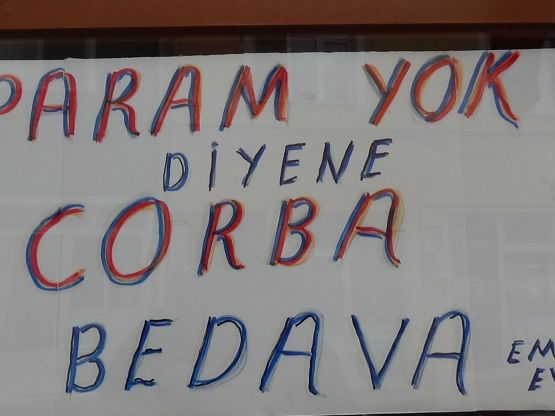 PARAM YOK
DİYENE
CORBA
BEDAVA